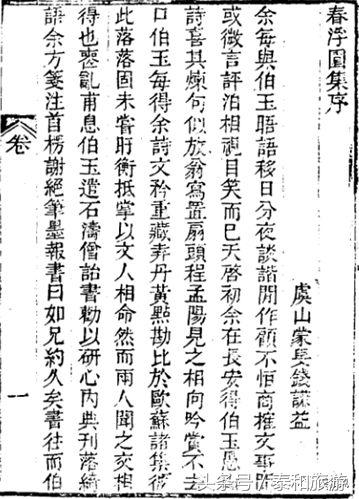 春浮園集序
虞山蒙叟錢謙益
余每與伯玉晤語移日分夜談諧閒作顧不恒商推文事
或微言評泊相視目笑而已天啓初余在長安得伯玉
詩喜其煉句似放翁寫置扇頭程孟陽見之相向吟賞不去
口伯玉每得余詩文矜重藏弆丹黃點勘比於歐蘇諸集彼
此落落固未嘗盱衡抵掌以文人相命然而兩人聞之交相
得也喪亂甫息伯玉遣石濤僧詒書勸以研心內典刊落綺
語余方箋注首楞謝絕筆墨報書曰如兄約久矣書往而伯
卷
一
头条号/泰和旅游